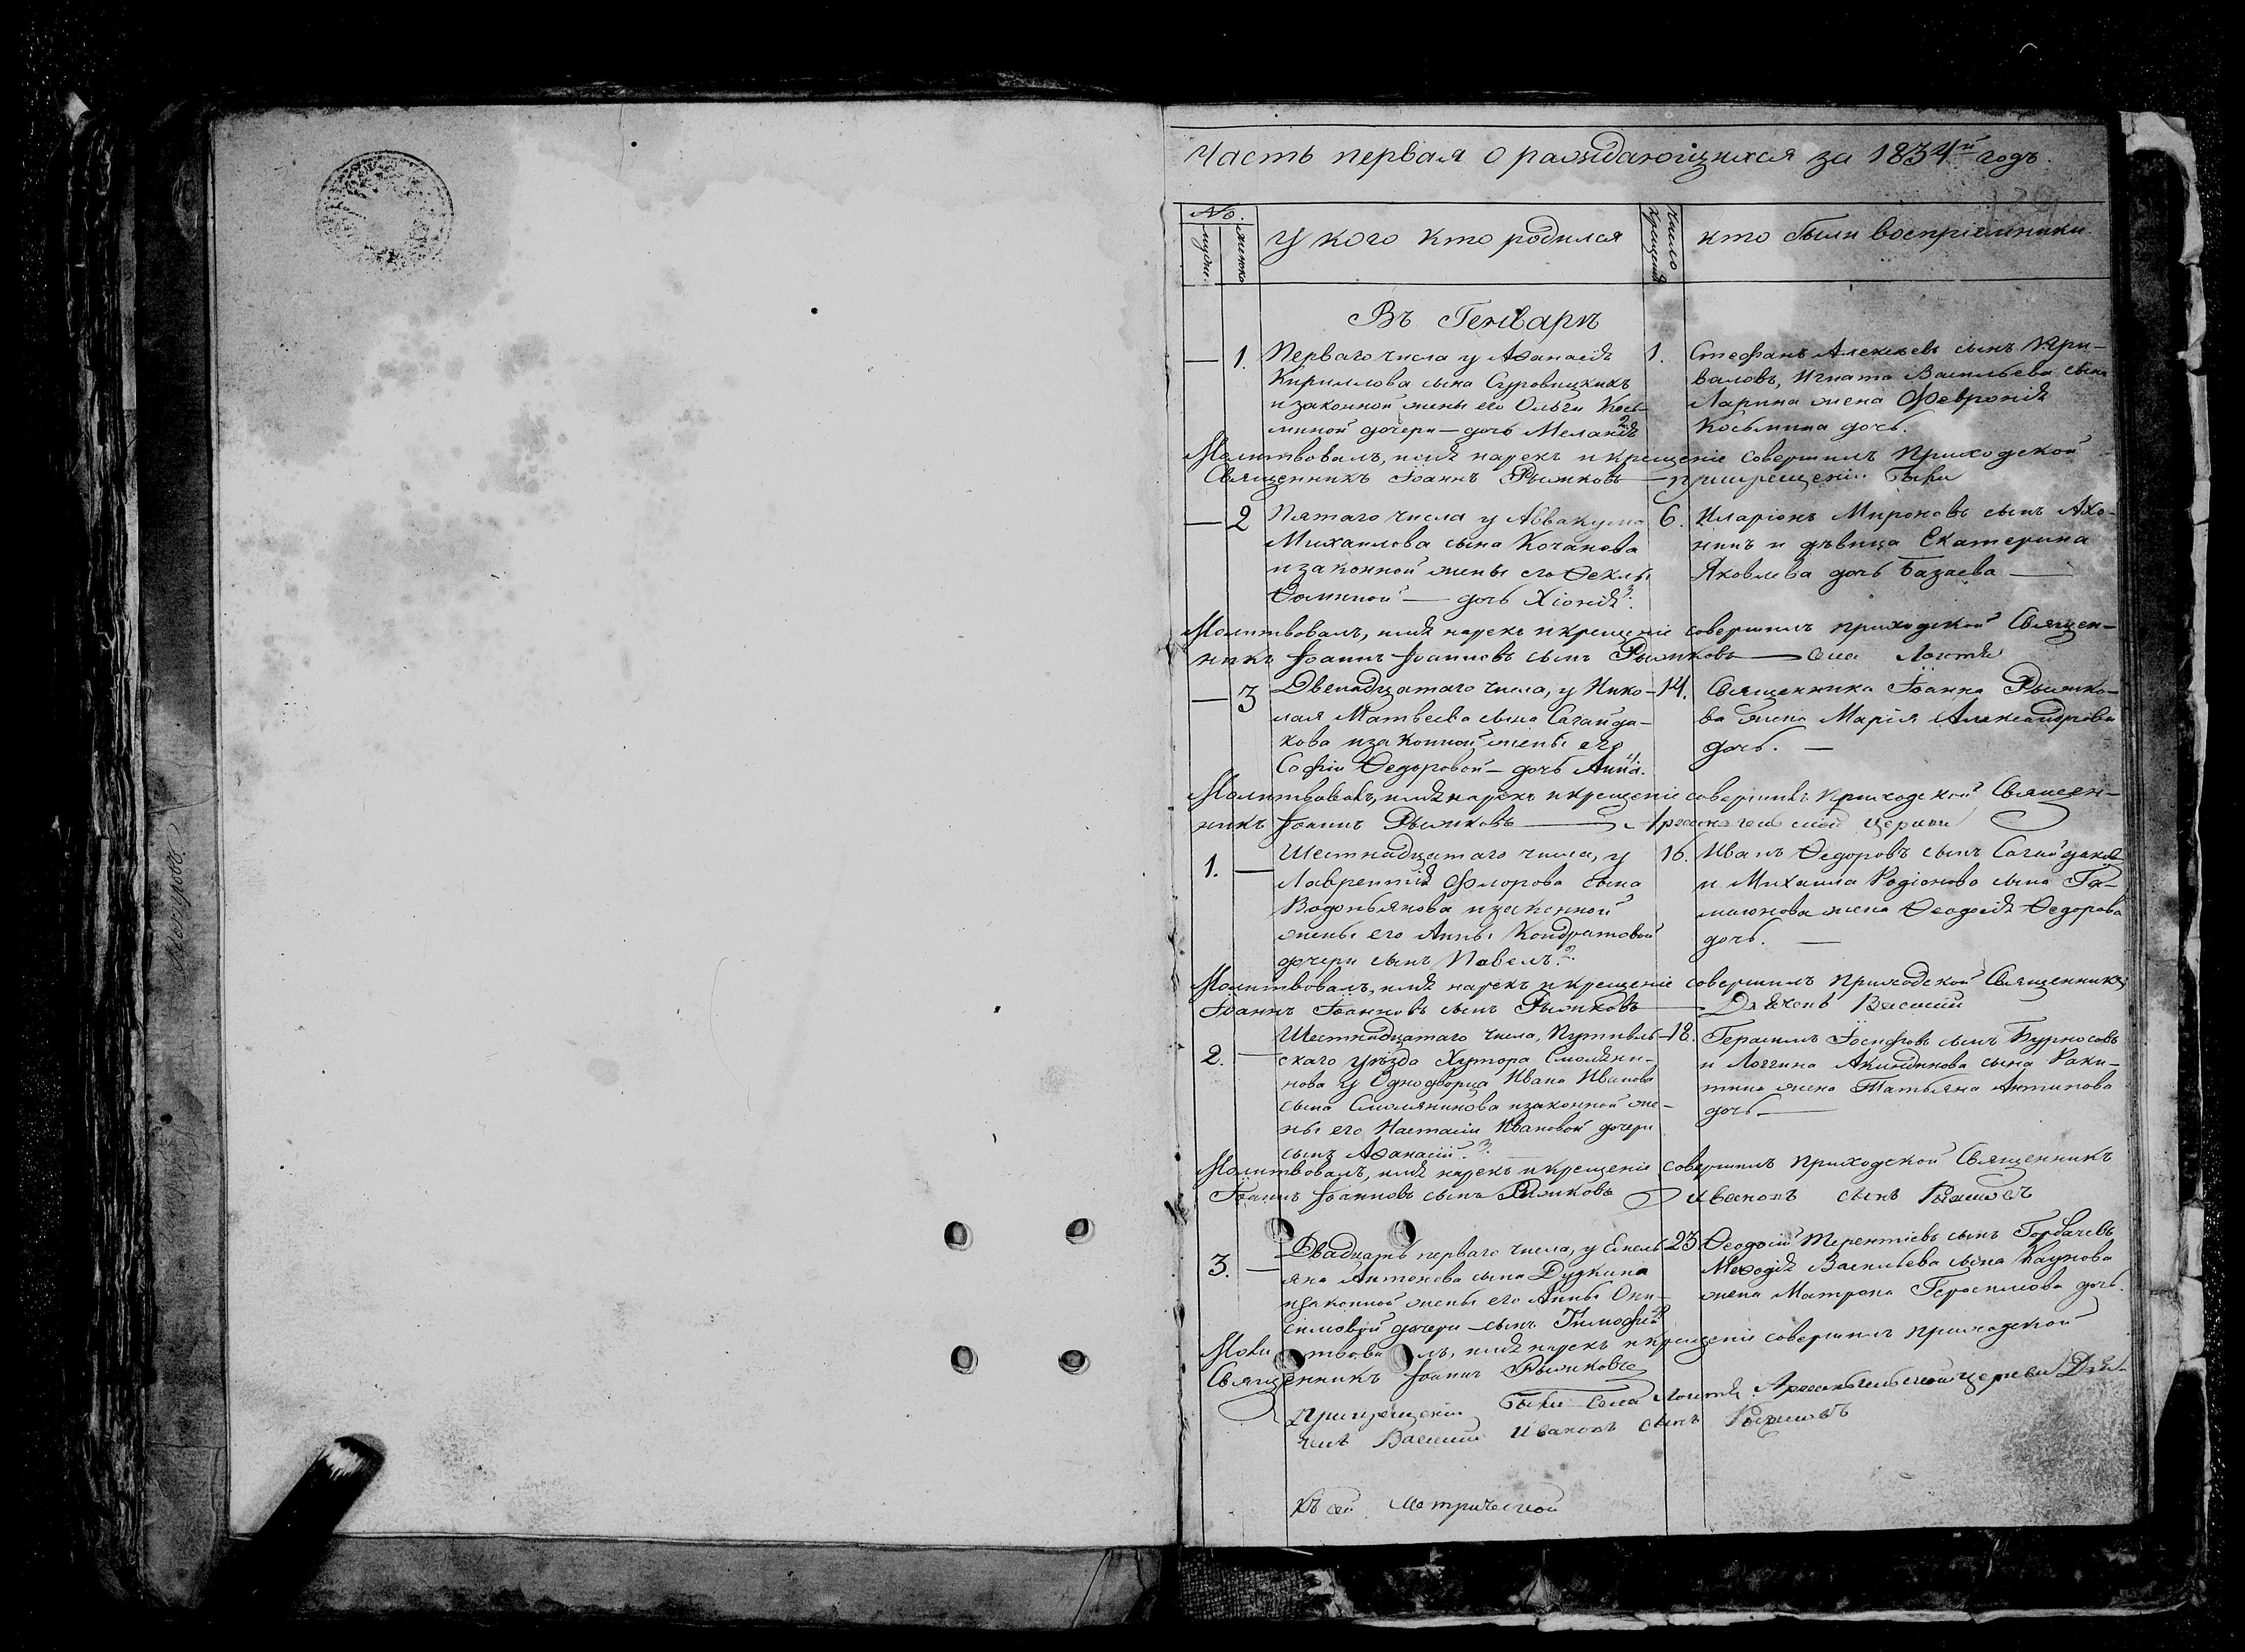 Часть первая о раждающихся за 1834й годъ.
№.
мужс. женско
У кого кто родился
Число крещенія
кто были воспріемники.
Въ Генварѣ
— 1. Перваго числа у Аѳанасія
Кириллова сына Суровицкихъ
и законной жены его Ольги Кось-
миной дочери — дочь Меланія
1. Стефанъ Алексѣевъ сынъ При-
валовъ, Игната Васильева сына
Ларина жена Февронія
Косьмина дочь.
Молитвовалъ, имя нарекъ и крещеніе совершилъ приходской
Священникъ Іоаннъ Рыжковъ — при крещеніи были
— 2 Пятаго числа у Аввакума
Михаилова сына Кочанова
и законной жены его Ѳеклы
Ѳоминой — дочь Хіонія.
6. Иларіонъ Мироновъ сынъ Ахо-
нинъ и дѣвица Екатерина
Яковлева дочь Базаева —
Молитвовалъ, имя нарекъ и крещеніе совершилъ приходской Священ-
никъ Іоаннъ Іоанновъ сынъ Рыжковъ — села Локтя
— 3 Двенадцатаго числа, у Нико-
лая Матвеева сына Сагайда-
кова и законной жены его
Софіи Ѳедоровой — дочь Анна.
14. Священника Іоанна Рыжко-
ва жена Марія Александрова
дочь. —
Молитвовалъ, имя нарекъ и крещеніе совершилъ приходской Священ-
никъ Іоаннъ Рыжковъ — Архангельской церкви
1. — Шестнадцатаго числа, у
Лаврентія Флорова сына
Водопьянова и законной
жены его Анны Кондратовой
дочери сынъ Павелъ.
16. Иванъ Ѳедоровъ сынъ Сагайдаковъ
и Михаила Родіонова сына Га-
маюнова жена Ѳеодосія Ѳедорова
дочь. —
Молитвовалъ, имя нарекъ и крещеніе совершилъ приходской Священникъ
Іоаннъ Іоанновъ сынъ Рыжковъ — Дьячекъ Василий
2. — Шестнадцатаго числа, Путивль-
скаго уѣзда Хутора Смоляни-
нова у Однодворца Ивана Иванова
сына Смолянинова и законной же-
ны его Настасіи Ивановой дочери
сынъ Аѳанасій.
18. Герасимъ Іосифовъ сынъ Бурносовъ
и Логгина Акиндинова сына Раки-
тина жена Татьяна Антипова
дочь —
Молитвовалъ, имя нарекъ и крещеніе совершилъ приходской Священникъ
Іоаннъ Іоанновъ сынъ Рыжковъ Ивановъ сынъ Рыжковъ
3. — Двадцать перваго числа, у Емель-
яна Антонова сына Дудкина
и законной жены его Анны Они-
симовой дочери — сынъ Тимофей
23 Ѳеодосій Терентіевъ сынъ Горбачевъ
Меѳодія Васильева сына Каунова
жена Матрона Герасимова дочь.
Молитвовалъ, имя нарекъ и крещеніе совершилъ приходской
Священникъ Іоаннъ Рыжковъ
При крещеніи были села Локтя Архангельской церкви Дья-
чекъ Василии Ивановъ сынъ Рыжковъ
Къ сей метрической